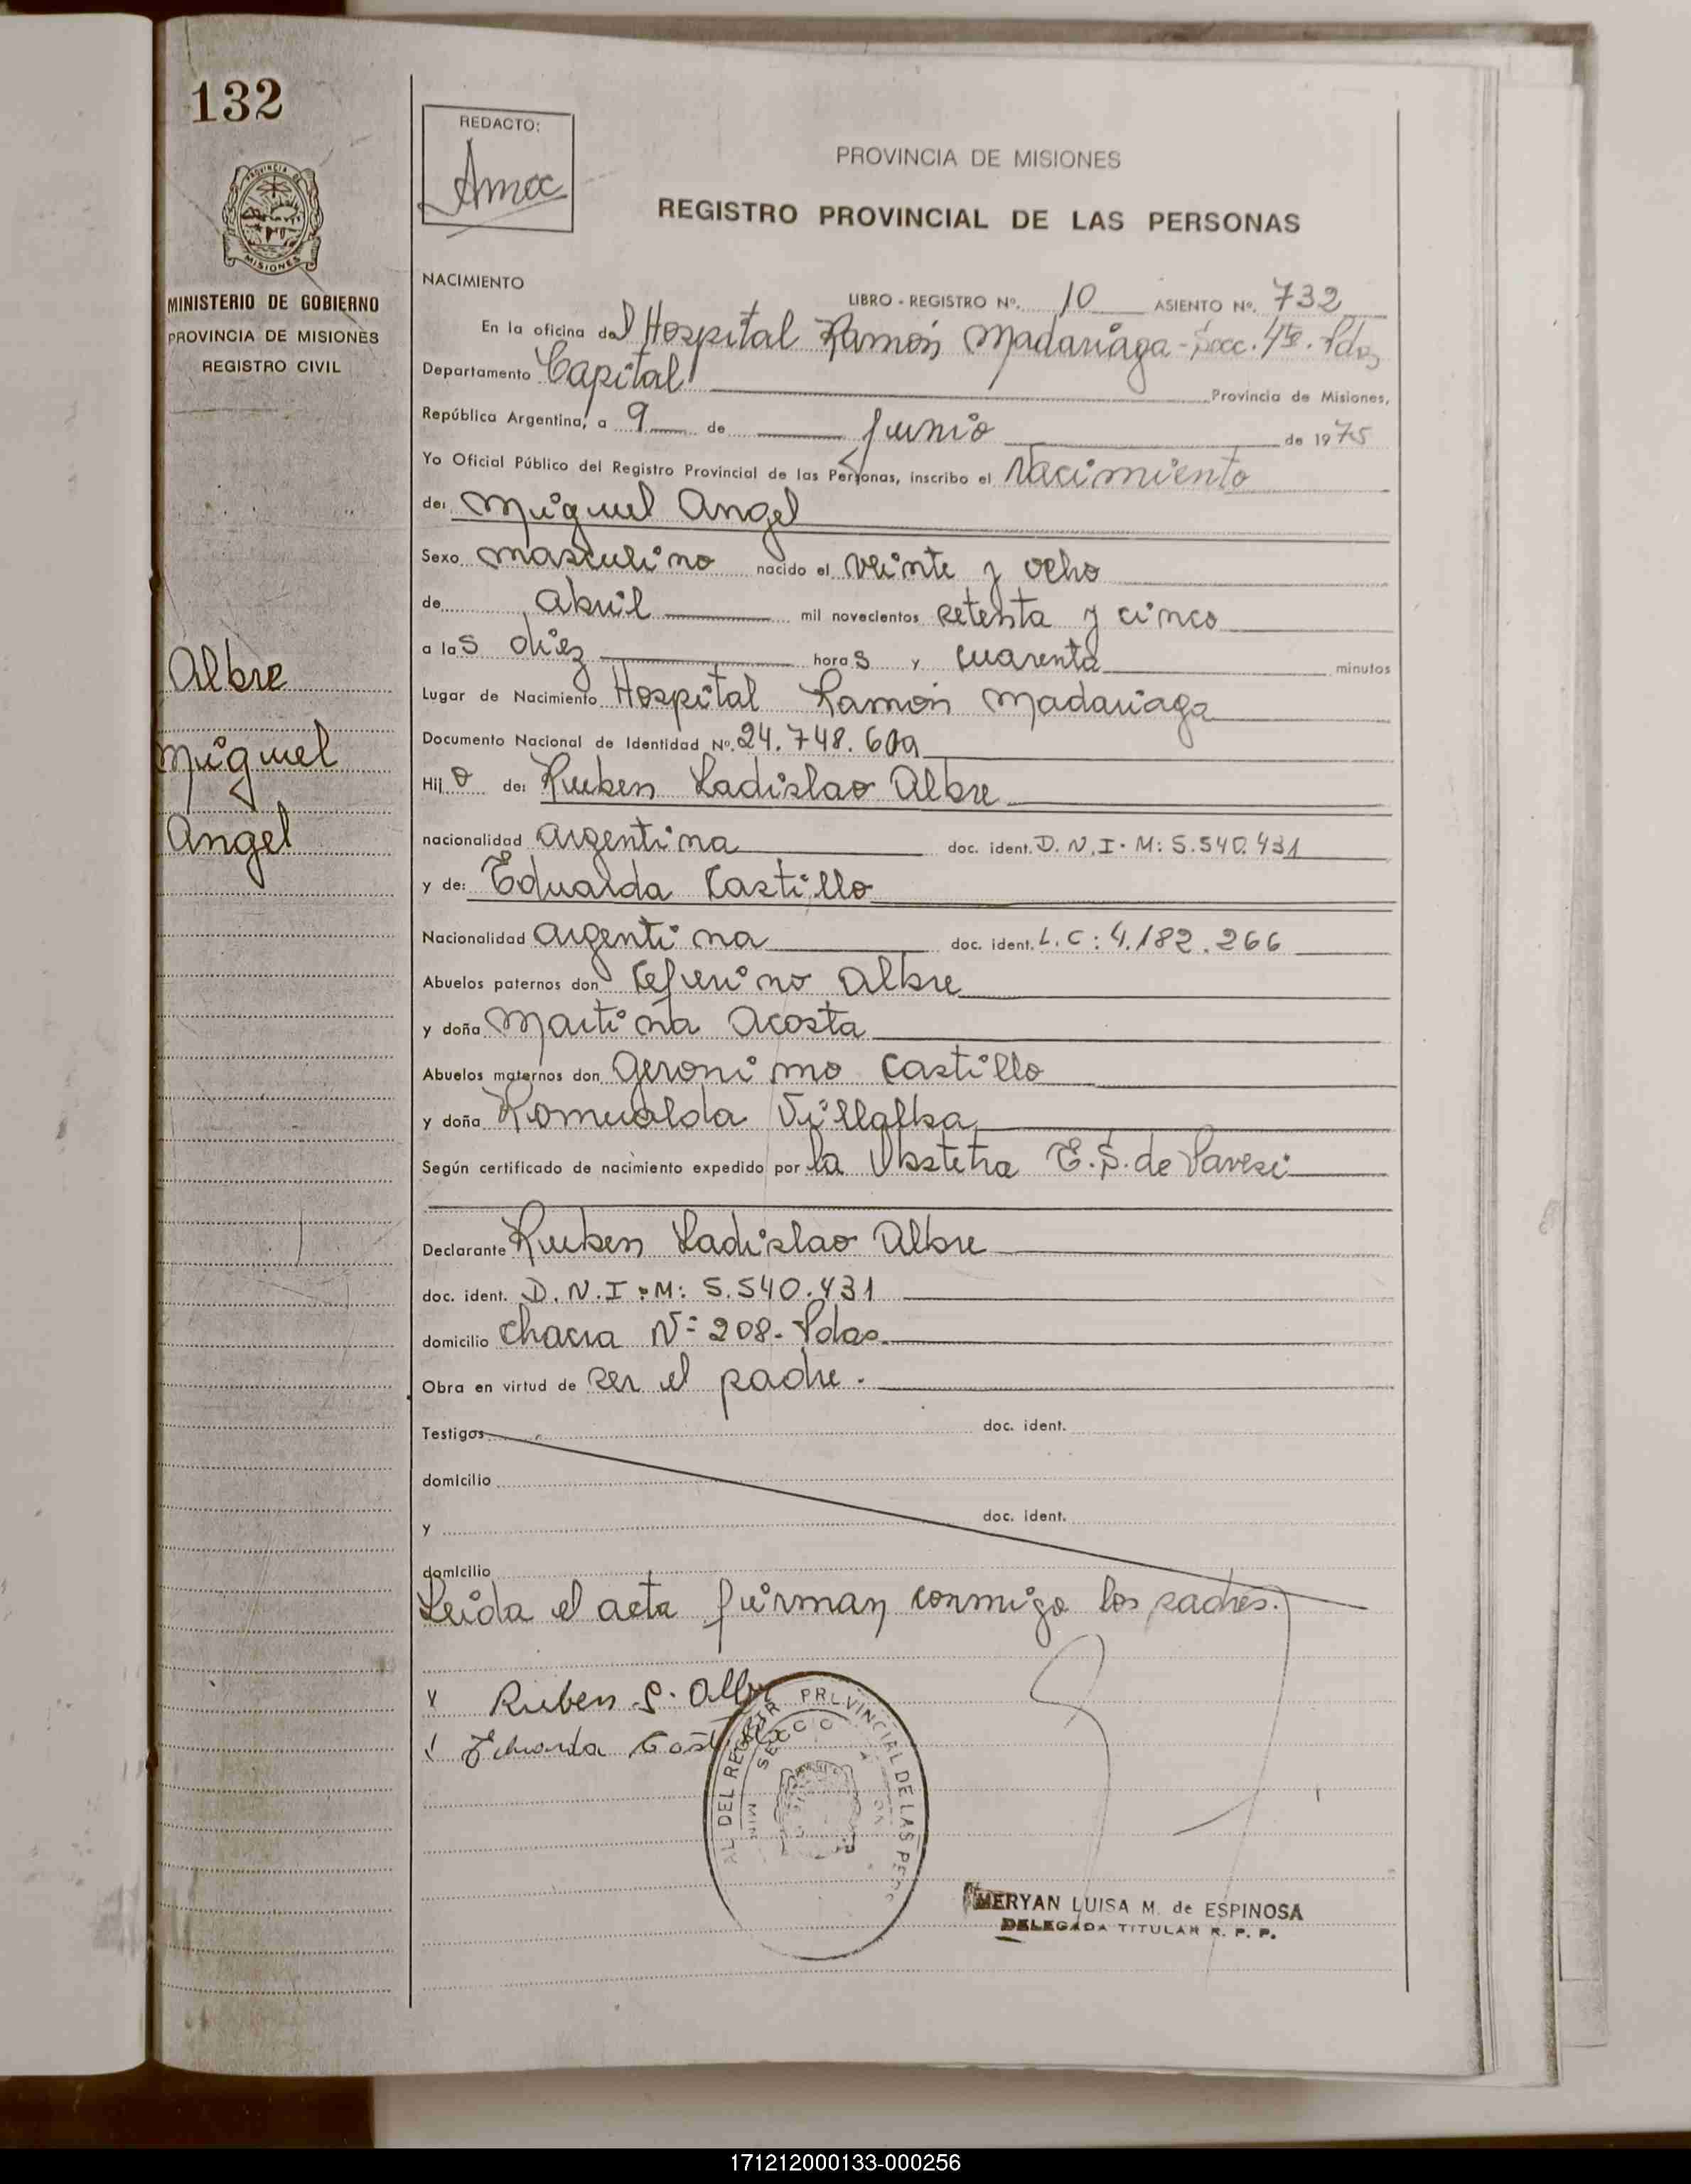 132
PROVINCIA DE
MISIONES
MINISTERIO DE GOBIERNO
PROVINCIA DE MISIONES
REGISTRO CIVIL
Albre
Miguel
Angel
REDACTO:
PROVINCIA DE MISIONES
REGISTRO PROVINCIAL DE LAS PERSONAS
NACIMIENTO
LIBRO - REGISTRO Nº. 10 ASIENTO Nº. 732
En la oficina del Hospital Ramón Madariaga - Secc. 4ta. Pdas
Departamento Capital Provincia de Misiones,
República Argentina, a 9 de Junio de 1975
Yo Oficial Público del Registro Provincial de las Personas, inscribo el Nacimiento
de: Miguel Angel
Sexo masculino nacido el veinte y ocho
de abril mil novecientos setenta y cinco
a las diez horas y cuarenta minutos
Lugar de Nacimiento Hospital Ramón Madariaga
Documento Nacional de Identidad Nº. 24.748.
Hijo de: Ruben Ladislao Albre
nacionalidad argentina doc. ident. D.N.I. M: 5.540.431
y de: Eduarda Castillo
Nacionalidad argentina doc. ident. L.C: 4.182.266
Abuelos paternos don Ceferino Albre
y doña Martina Acosta
Abuelos maternos don Geronimo Castillo
y doña Romualda Villalba
Según certificado de nacimiento expedido por la Obstetra E.S. de Pavesi
Declarante Ruben Ladislao Albre
doc. ident. D.N.I. M: 5.540.431
domicilio Chacra Nº 208. Pdas.
Obra en virtud de ser el padre.
Testigos doc. ident.
domicilio
y doc. ident.
domicilio
Leida el acta firman conmigo los padres.
Ruben L. Albre
Eduarda Castillo
DEL REGISTR PROVINCIAL DE LAS PE
SECCIO
MERYAN LUISA M. de ESPINOSA
DELEGADA TITULAR R. P. P.
171212000133-000256